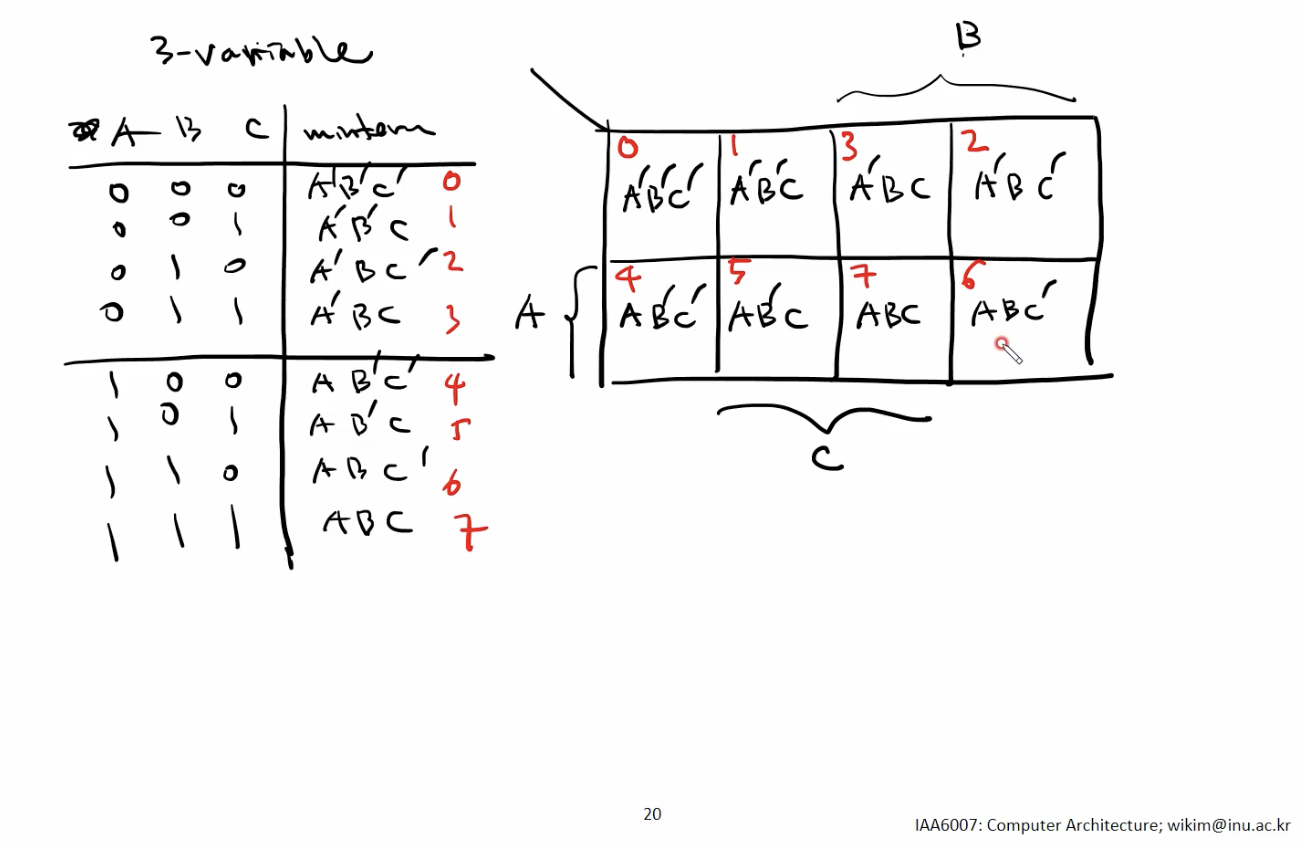 3-variable
A B C minterm
0 0 0 A'B'C' 0
0 0 1 A'B'C 1
0 1 0 A'BC' 2
0 1 1 A'BC 3
1 0 0 AB'C' 4
1 0 1 AB'C 5
1 1 0 ABC' 6
1 1 1 ABC 7
B
0 1 3 2
A'B'C' A'B'C A'BC A'BC'
4 5 7 6
A AB'C' AB'C ABC ABC'
C
20
IAA6007: Computer Architecture; wikim@inu.ac.kr